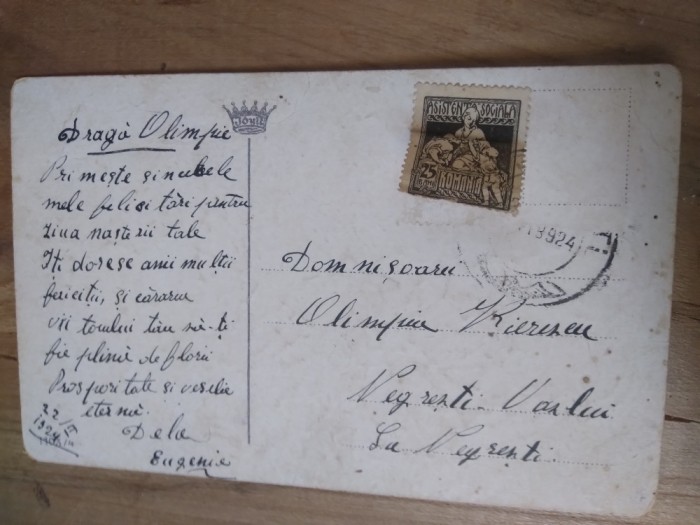 Dragă Olimpie
Primește și nubele
mele felicitări pentru
ziua nașterii tale
Iți doresc anii mulții
fericiții, și cărarea
viitorului tău să-ți
fie plină de florii
Prosperitate si veselie
eternă.
Dela
Eugenie
1924
ASISTENȚA SOCIALA
25
ROMANIA
924
Domnișoarii
Olimpia
Negrești-Vaslui
La Negrești